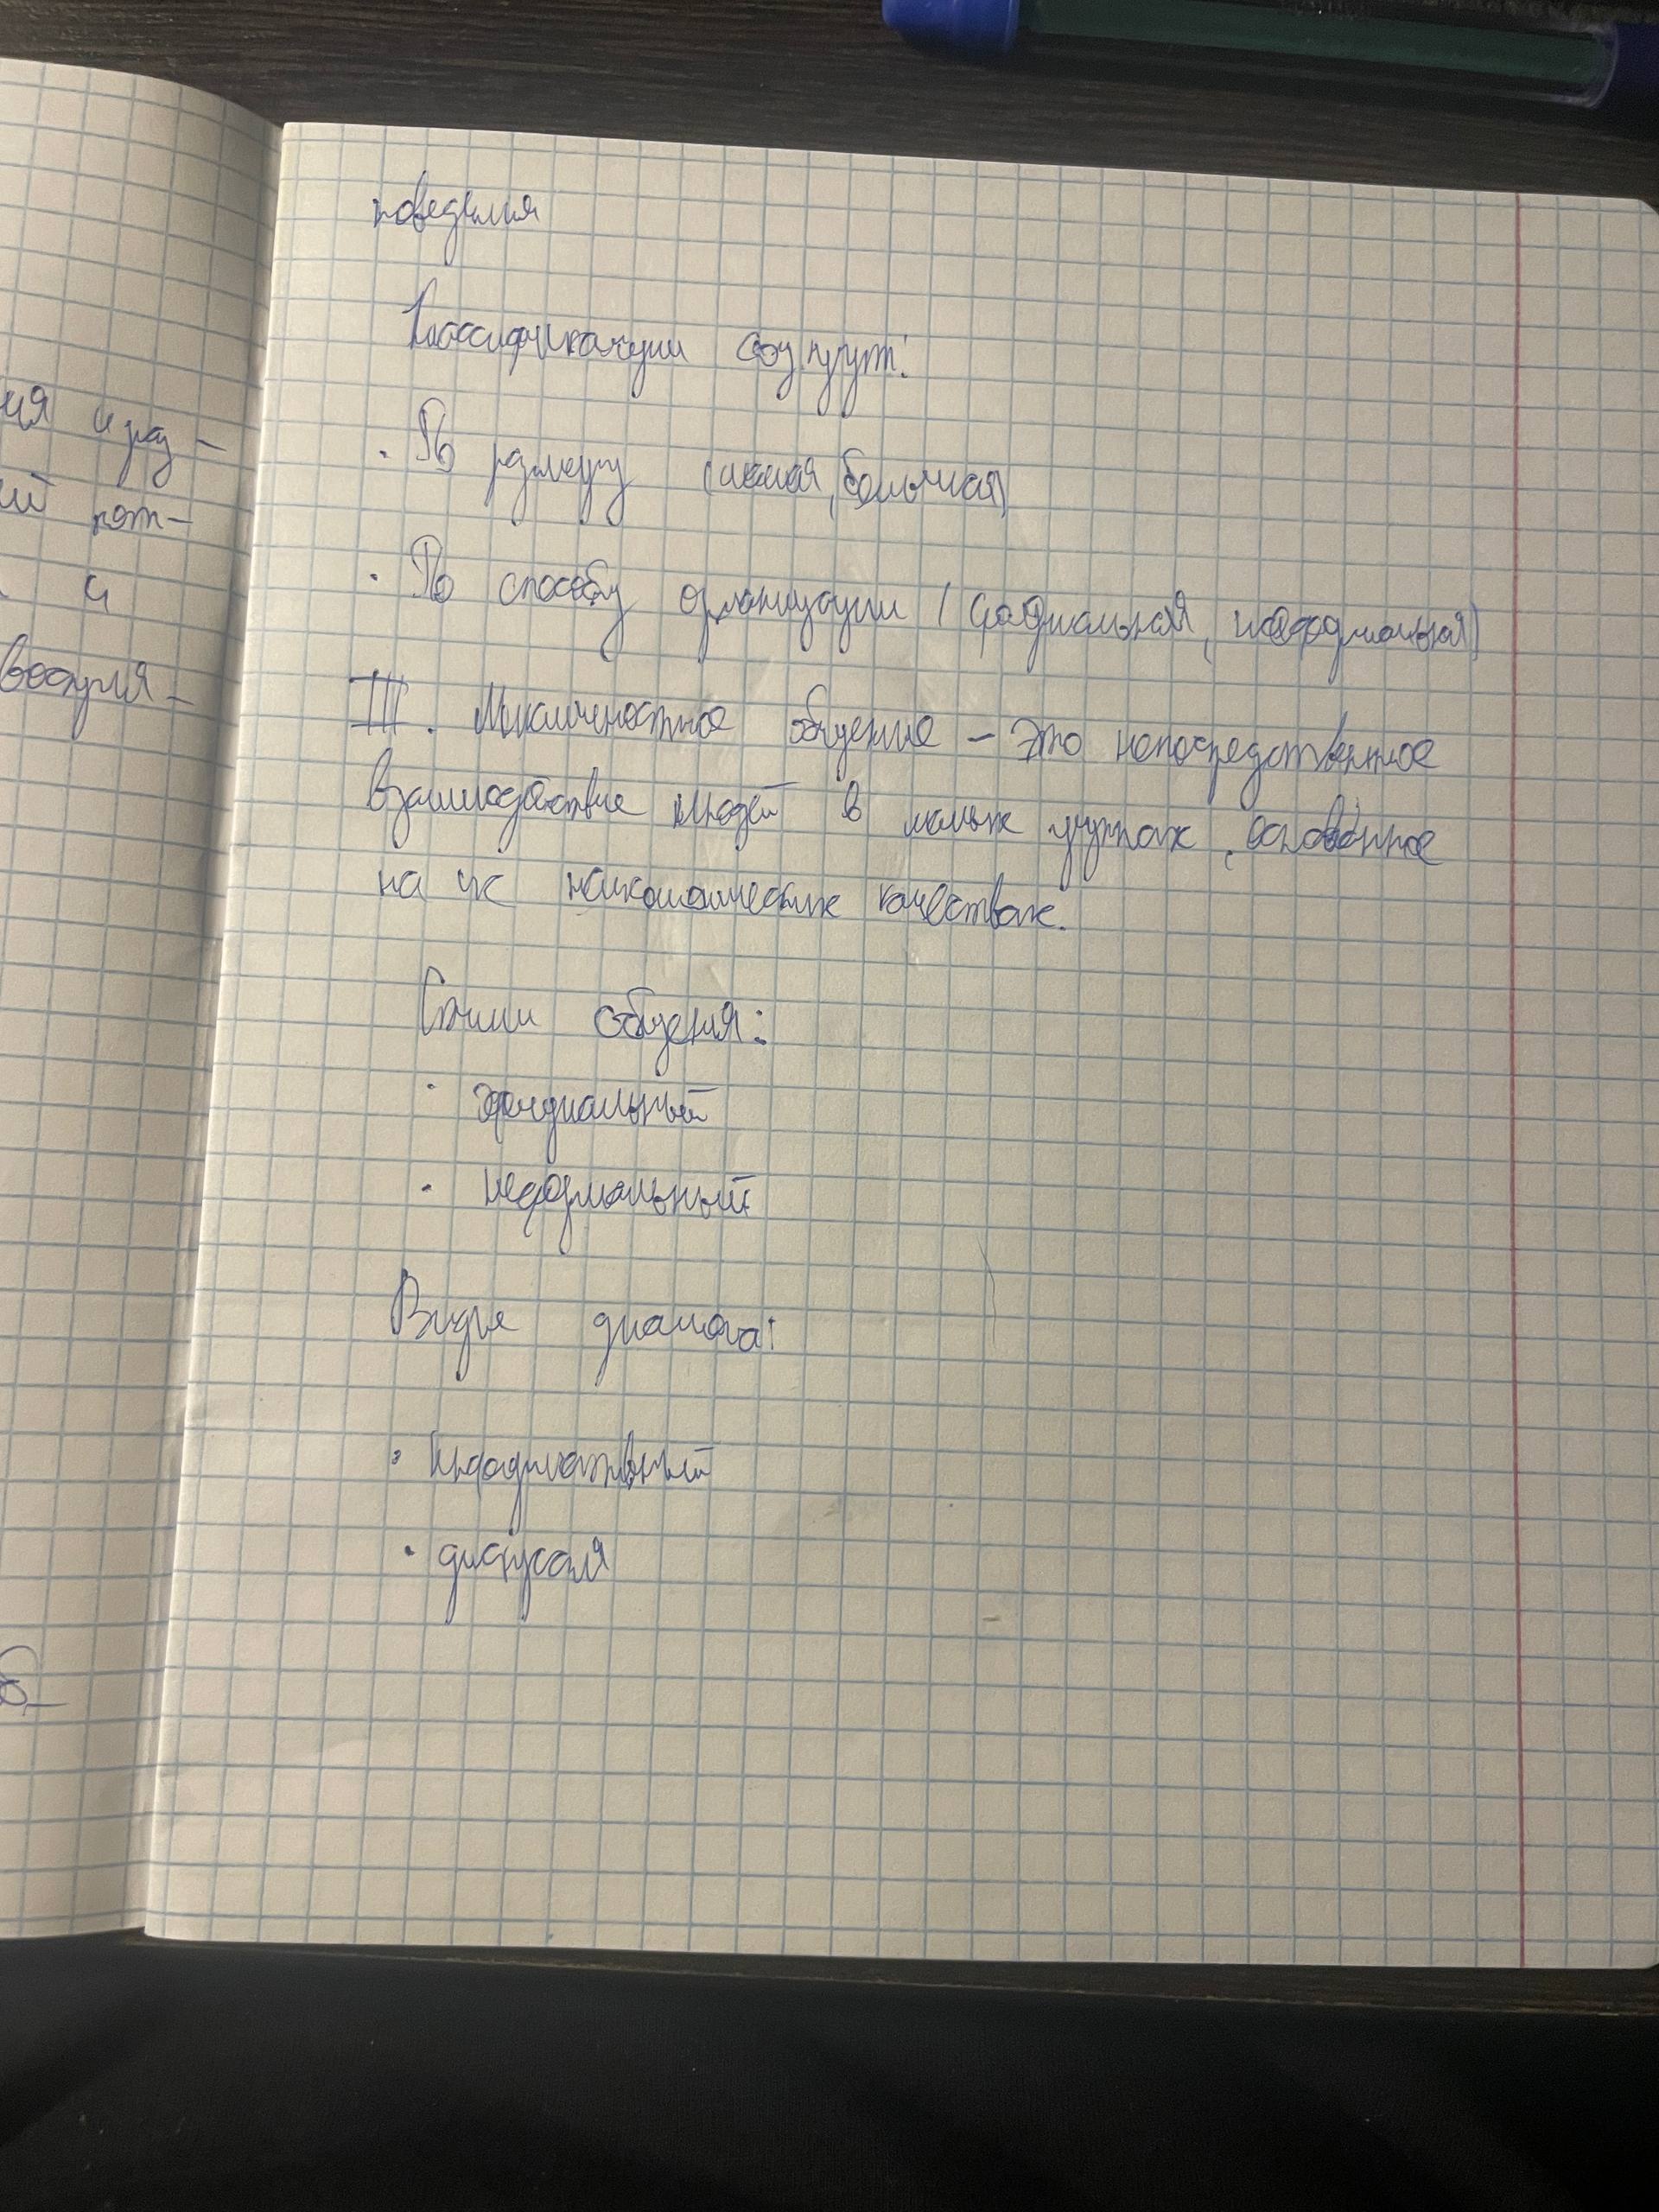 ия и раз-
ий пот-
и
воспуля-
поведения
Классификации соц групп:
· По размеру (малая, большая)
· По способу организации (формальная, неформальная)
III. Межличностное общение – это непосредственное
взаимодействие людей в малых группах, основанное
на их психологических качествах.
Стили общения:
· официальный
· неформальный
Виды диалога:
· Информативный
· дискуссия